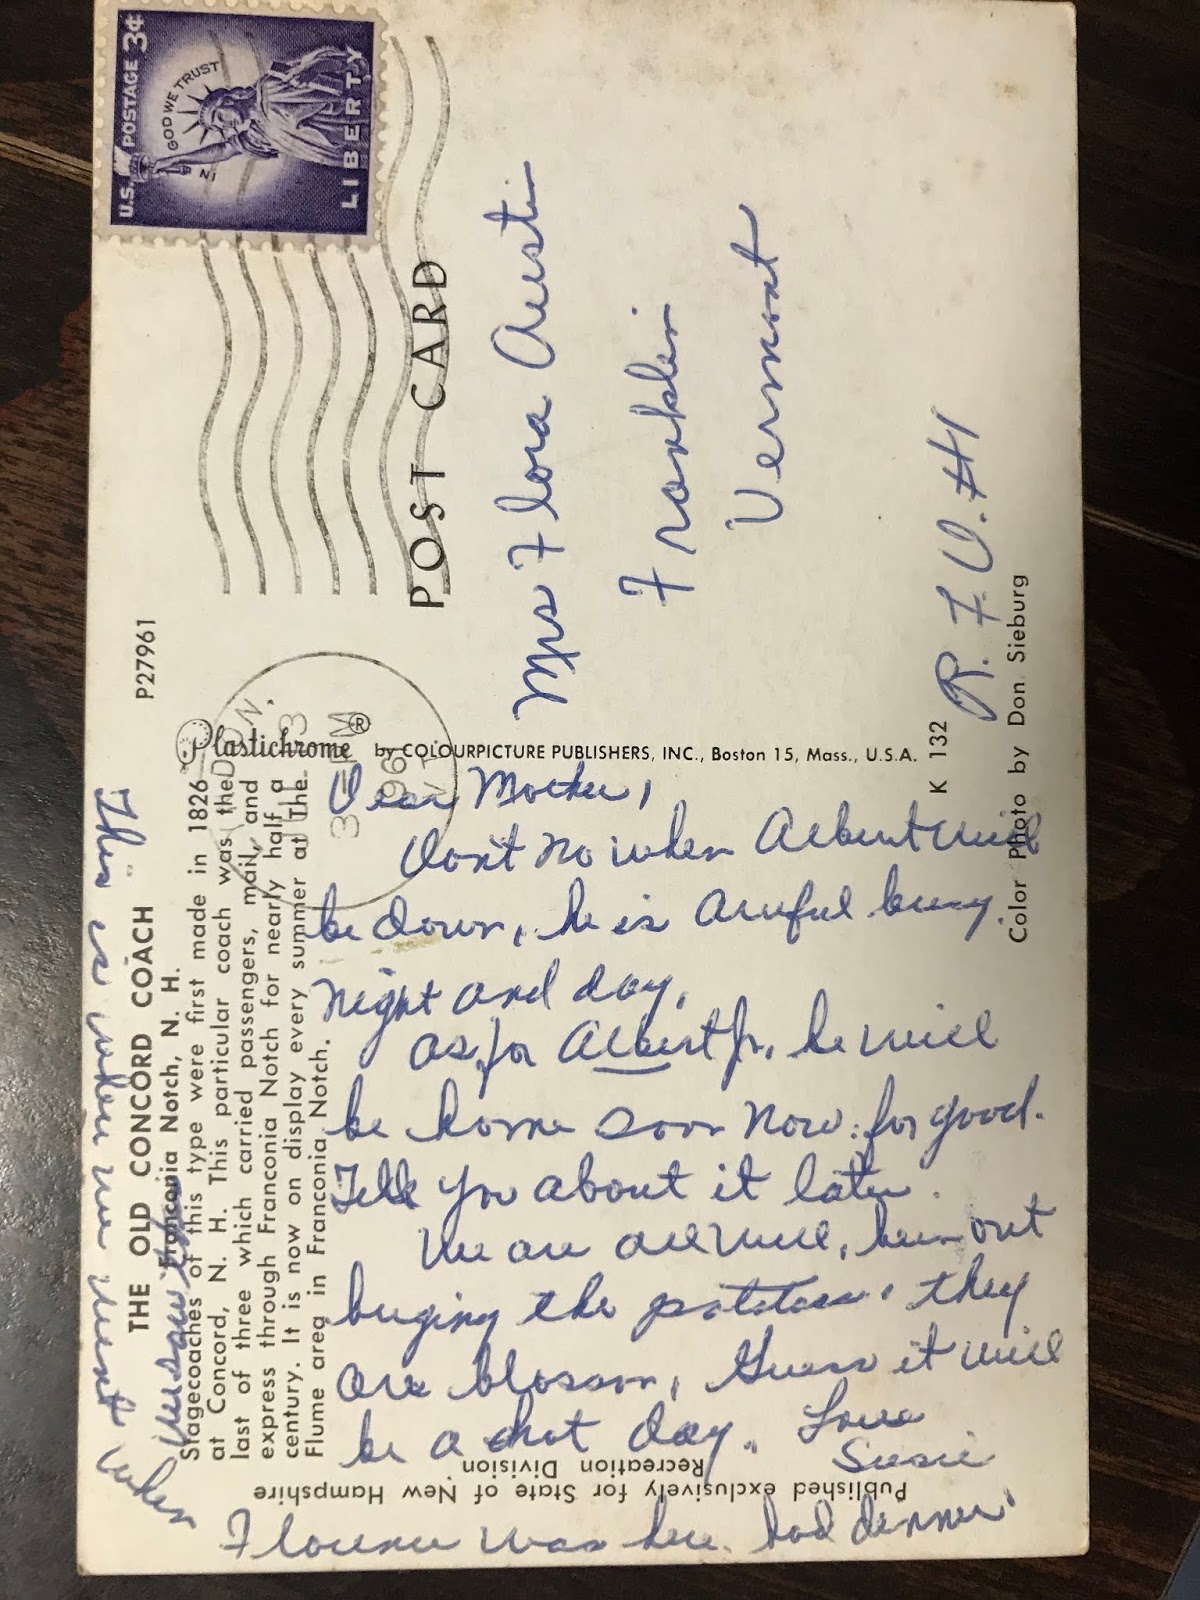 THE OLD CONCORD COACH
Franconia Notch, N. H.
Stagecoaches of this type were first made in 1826
at Concord, N. H. This particular coach was the
last of three which carried passengers, mail, and
express through Franconia Notch for nearly half a
century. It is now on display every summer at The
Flume area in Franconia Notch.
P27961
This is when we went when
Florence was here. had dinner
Dear Mother,
Dont no when Albert will
be down, he is awful busy.
night and day.
as for Albert Jr. he will
be home soon now. for good.
Tell you about it later.
We are all well, been out
buging the potatoes, they
are blossom, Guess it will
be a hot day. Love
Susie
Published exclusively for State of New Hampshire
Recreation Division
Plastichrome ® by COLOURPICTURE PUBLISHERS, INC., Boston 15, Mass., U.S.A.
K 132
Color Photo by Don Sieburg
U.S. POSTAGE 3¢
IN GOD WE TRUST
LIBERTY
1961
POST CARD
Mrs Flora Austin
Franklin
Vermont
R. F. D. #1